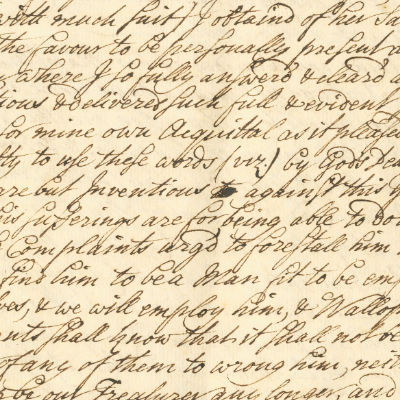 with much suit) I obtaind of her Ma
the favour to be personally present a
where I so fully answerd & cleard a
tious & delivered such full & evident
for mine own Acquittal as it pleased
ty to use these words (viz.) by Gods Dea
are but Inventions against this
his sufferings are for being able to do
Complaints urgd to forestall him
find him to be a Man fit to be emp
ves, & we will employ him, & Wallop
nts shall know that it shall not be
of any of them to wrong him, nei
be our Treasurer any longer, and